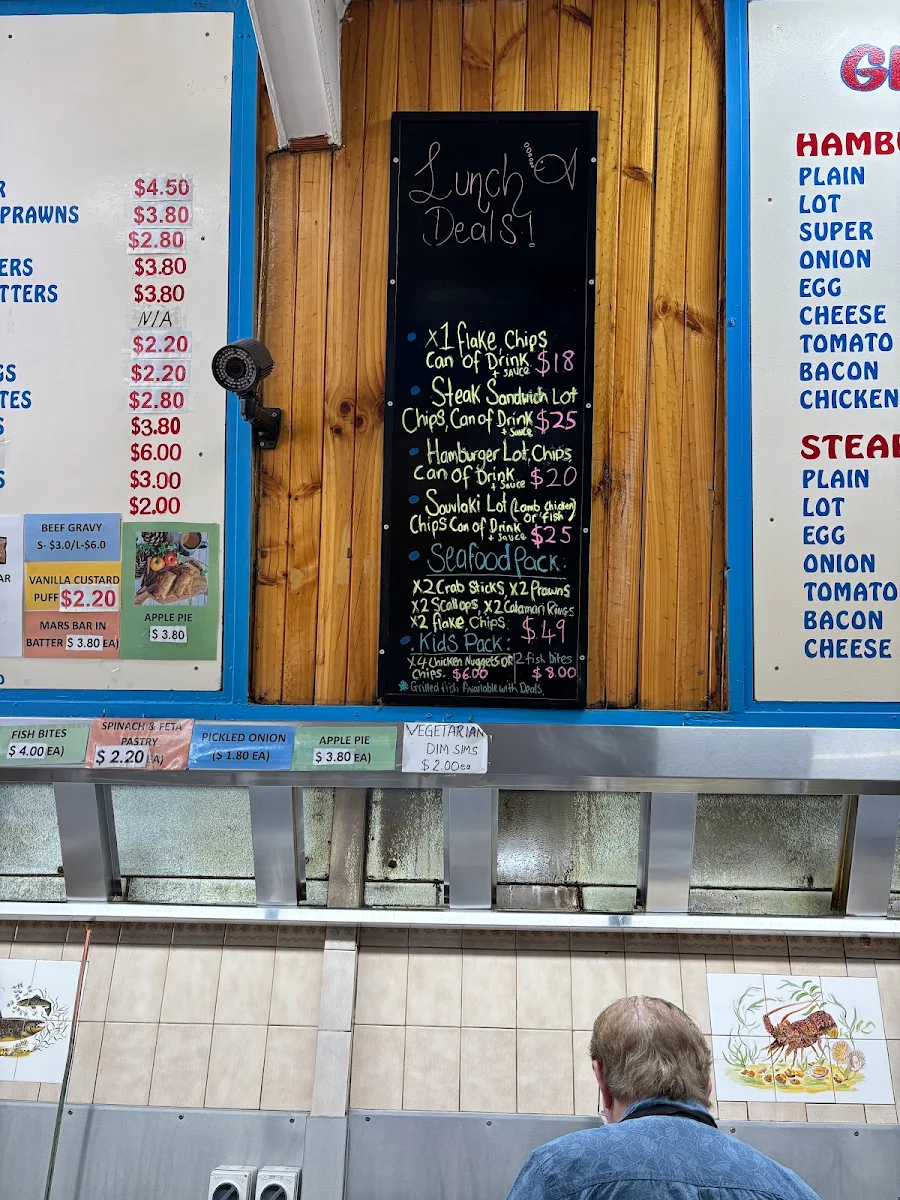 R $4.50
PRAWNS $3.80
$2.80
ERS $3.80
TTERS $3.80
N/A
$2.20
GS $2.20
TES $2.80
S $3.80
$6.00
S $3.00
$2.00
AR
BEEF GRAVY
S- $3.0/L-$6.0
VANILLA CUSTARD
PUFF $2.20
MARS BAR IN
BATTER $3.80 EA)
APPLE PIE
$3.80
Lunch
Deals!
x1 flake, Chips
Can of Drink + sauce $18
Steak Sandwich Lot
Chips, Can of Drink + sauce $25
Hamburger Lot, Chips,
Can of Drink + sauce $20
Souvlaki Lot (Lamb, Chicken
or fish)
Chips Can of Drink + sauce $25
Seafood Pack:
x2 Crab Sticks, x2 Prawns
x2 Scallops, x2 Calamari Rings
x2 flake, Chips. $49
Kids Pack:
x4 Chicken Nuggets or 2 fish bites
Chips. $6.00 $8.00
* Grilled fish Available with Deals
G
HAMBU
PLAIN
LOT
SUPER
ONION
EGG
CHEESE
TOMATO
BACON
CHICKEN
STEA
PLAIN
LOT
EGG
ONION
TOMATO
BACON
CHEESE
FISH BITES
$4.00 EA)
SPINACH & FETA
PASTRY
$2.20 EA)
PICKLED ONION
($1.80 EA)
APPLE PIE
$3.80 EA)
VEGETARIAN
DIM SIMS
$2.00ea